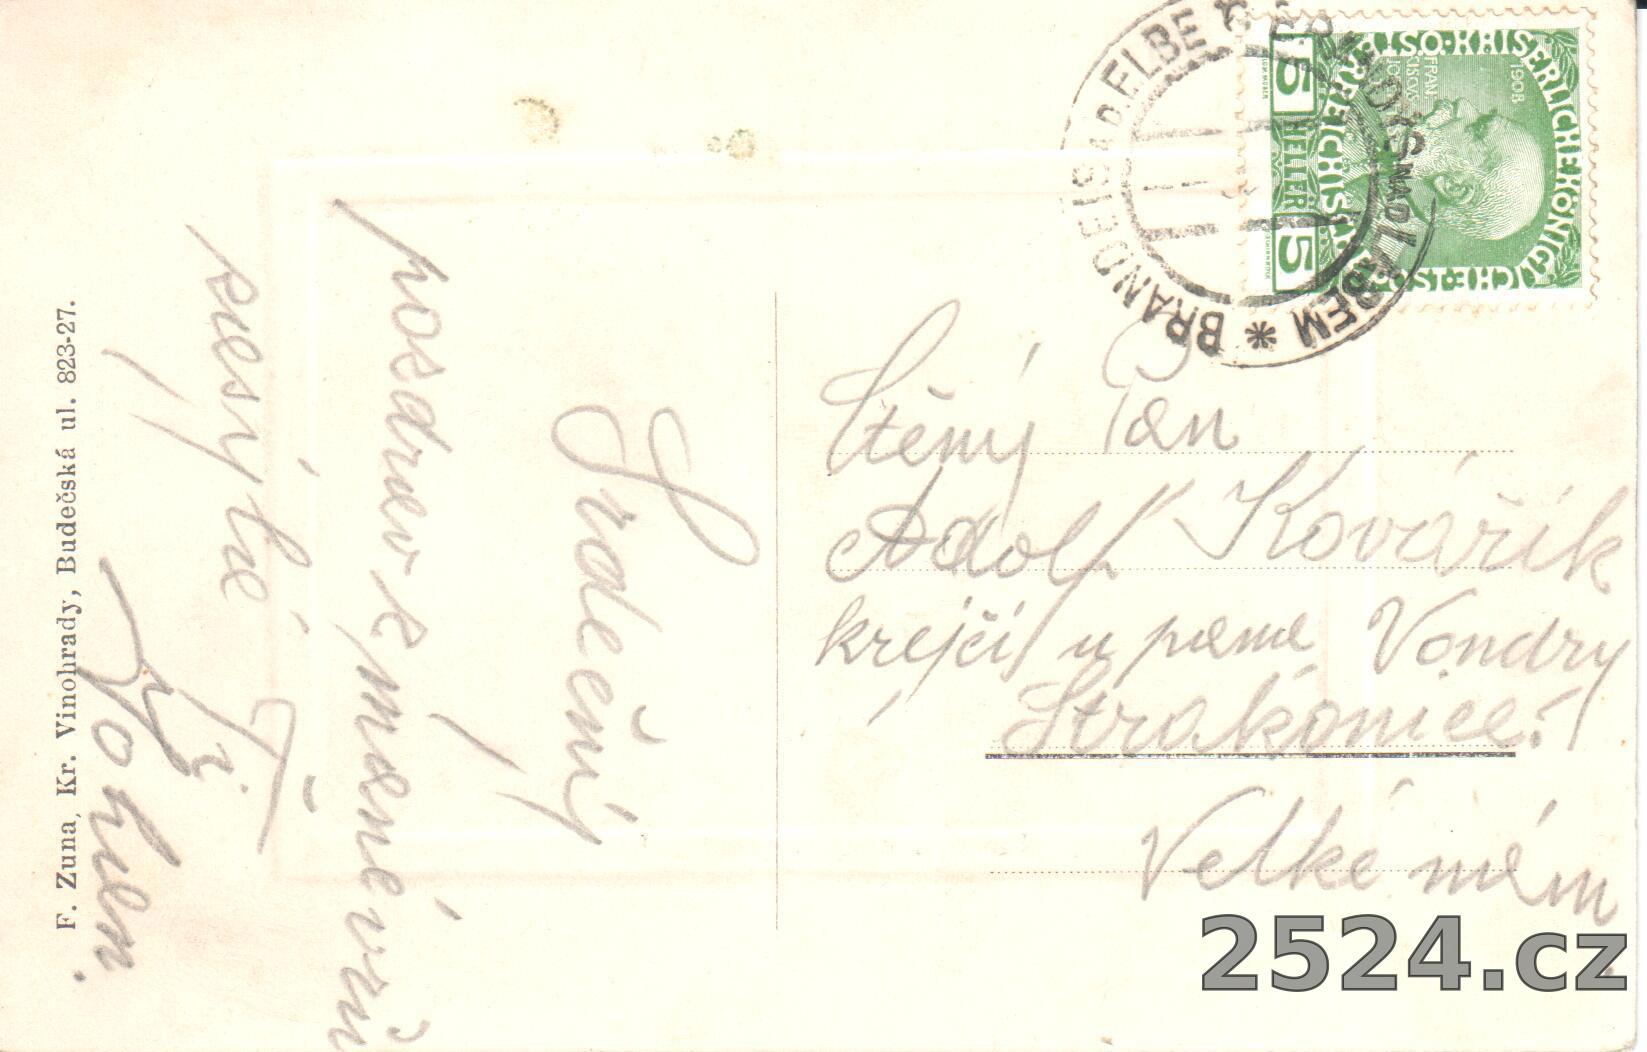 F. Zuna, Kr. Vinohrady, Budečská ul. 823-27.
Srdečný
pozdrav k
zesýlá
BRANDEIS a.d. ELBE * BRANDÝS NAD LABEM *
1908
FRAN
CISCVS
5 HELLER 5
KAISERLICHE KÖNIGLICHE
ÖSTERREICHISCHE POST
Ctěný Pan
Adolf Kovářík
krejčí u pana Vondry
Strakonice.
Velké nám
2524.cz